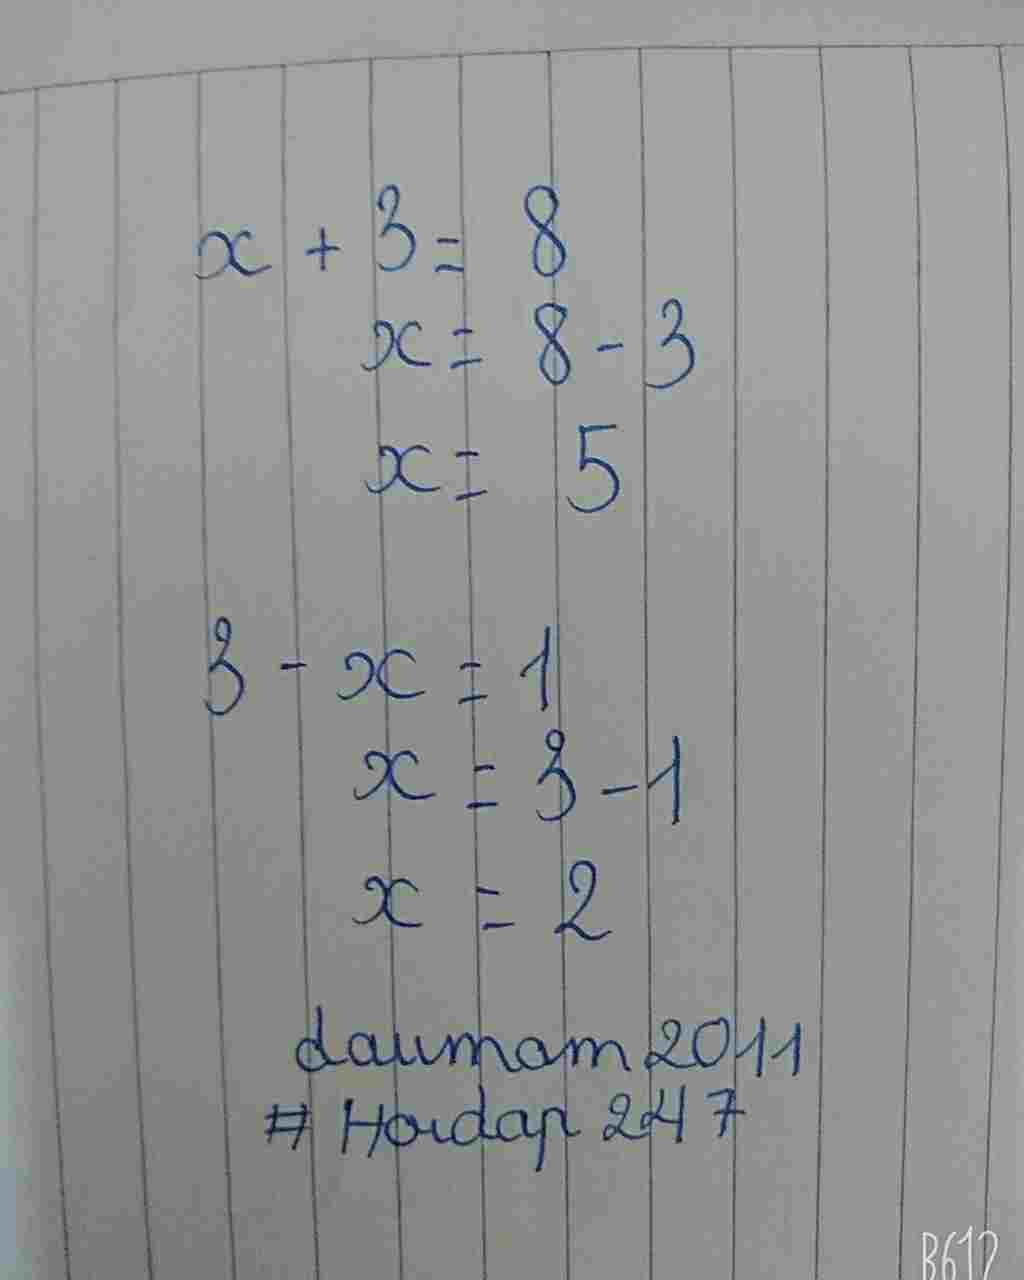 x + 3 = 8
x = 8 - 3
x = 5
3 - x = 1
x = 3 - 1
x = 2
daumam2011
# Hoidap 247
B612